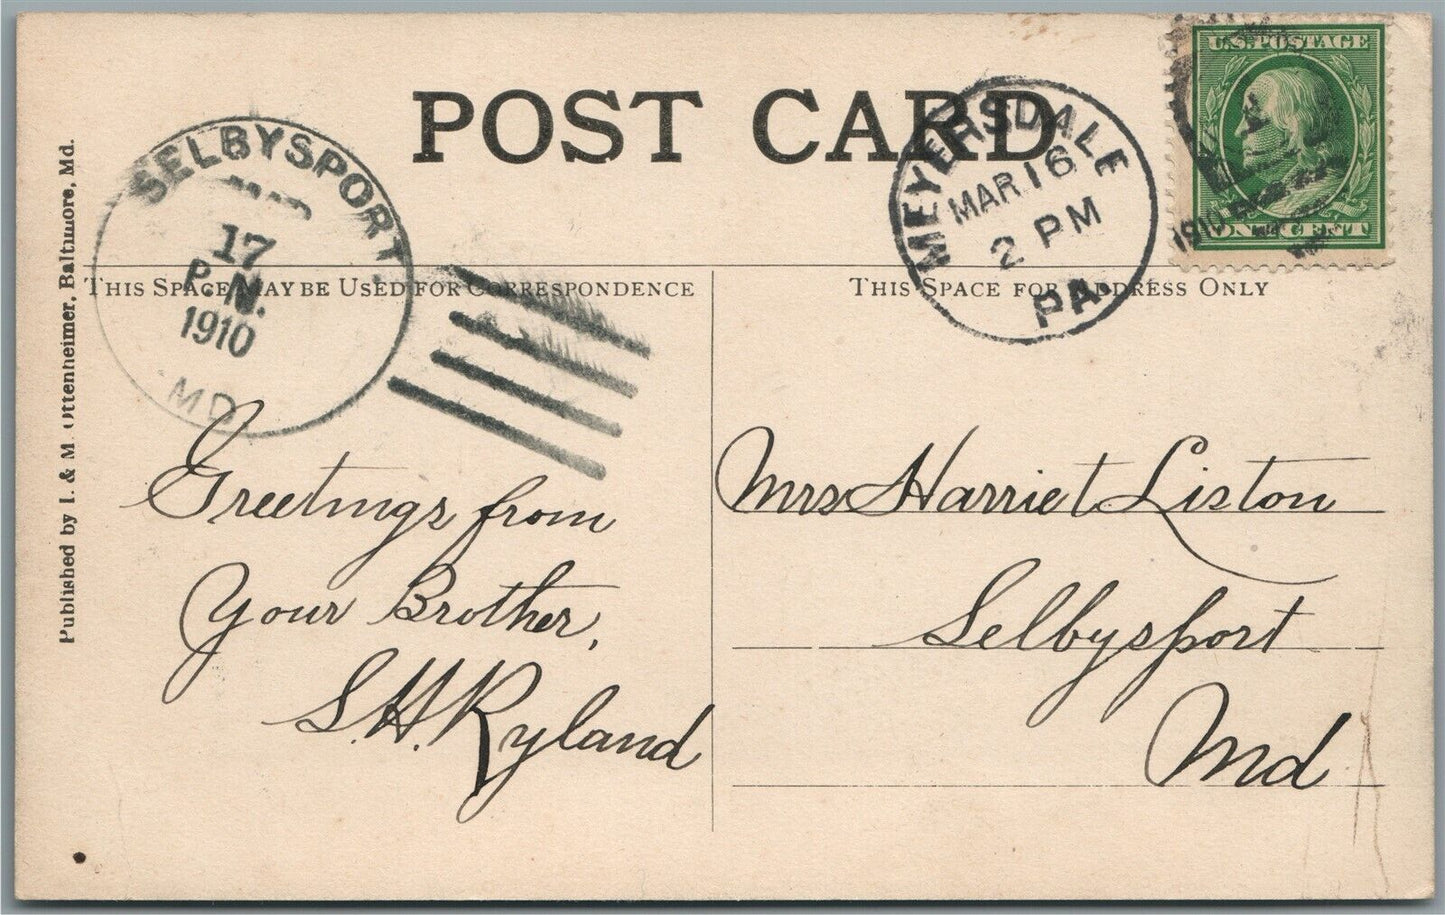 POST CARD
SELBYSPORT.
17
P.M.
1910
MD
MEYERSDALE
MAR 16
2 PM
PA.
1910
U.S. POSTAGE
ONE CENT
THIS SPACE MAY BE USED FOR CORRESPONDENCE
THIS SPACE FOR ADDRESS ONLY
Published by I. & M. Ottenheimer, Baltimore, Md.
Greetings from
Your Brother,
S.H. Ryland
Mrs Harriet Liston
Selbysport
Md